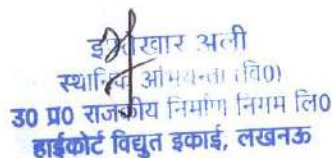 इफ्तेखार अली
स्थानिक अभियन्ता (वि0)
उ0 प्र0 राजकीय निर्माण निगम लि0
हाईकोर्ट विद्युत इकाई, लखनऊ